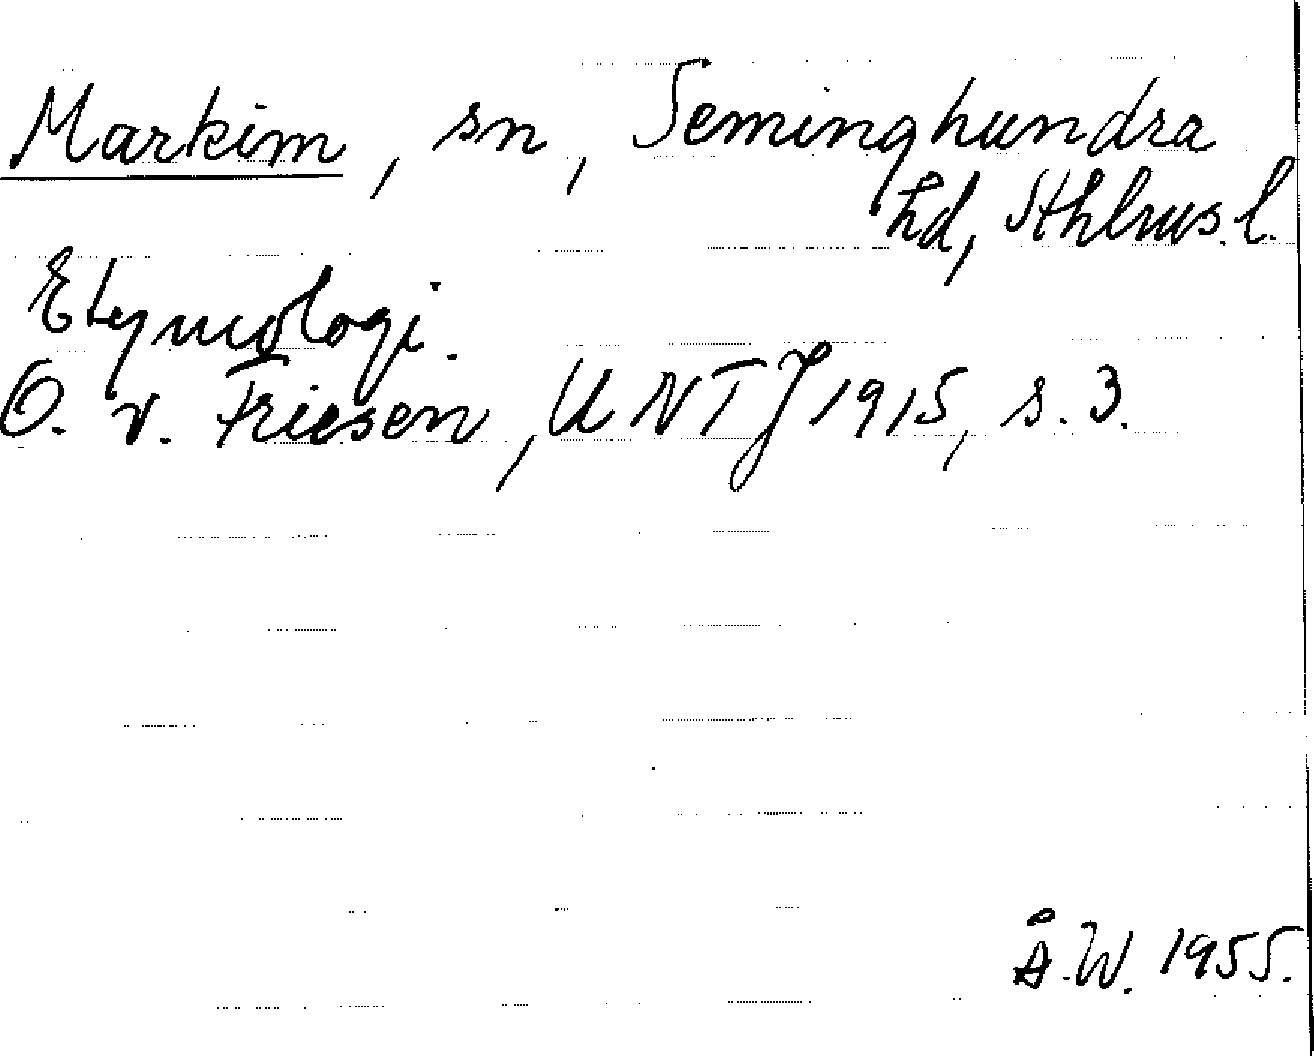 Markim, sn, Seminghundra
hd, Sthlms. l.
Etymologi.
O. v. Friesen, UNTJ 1915, s. 3.
Å. W. 1955.